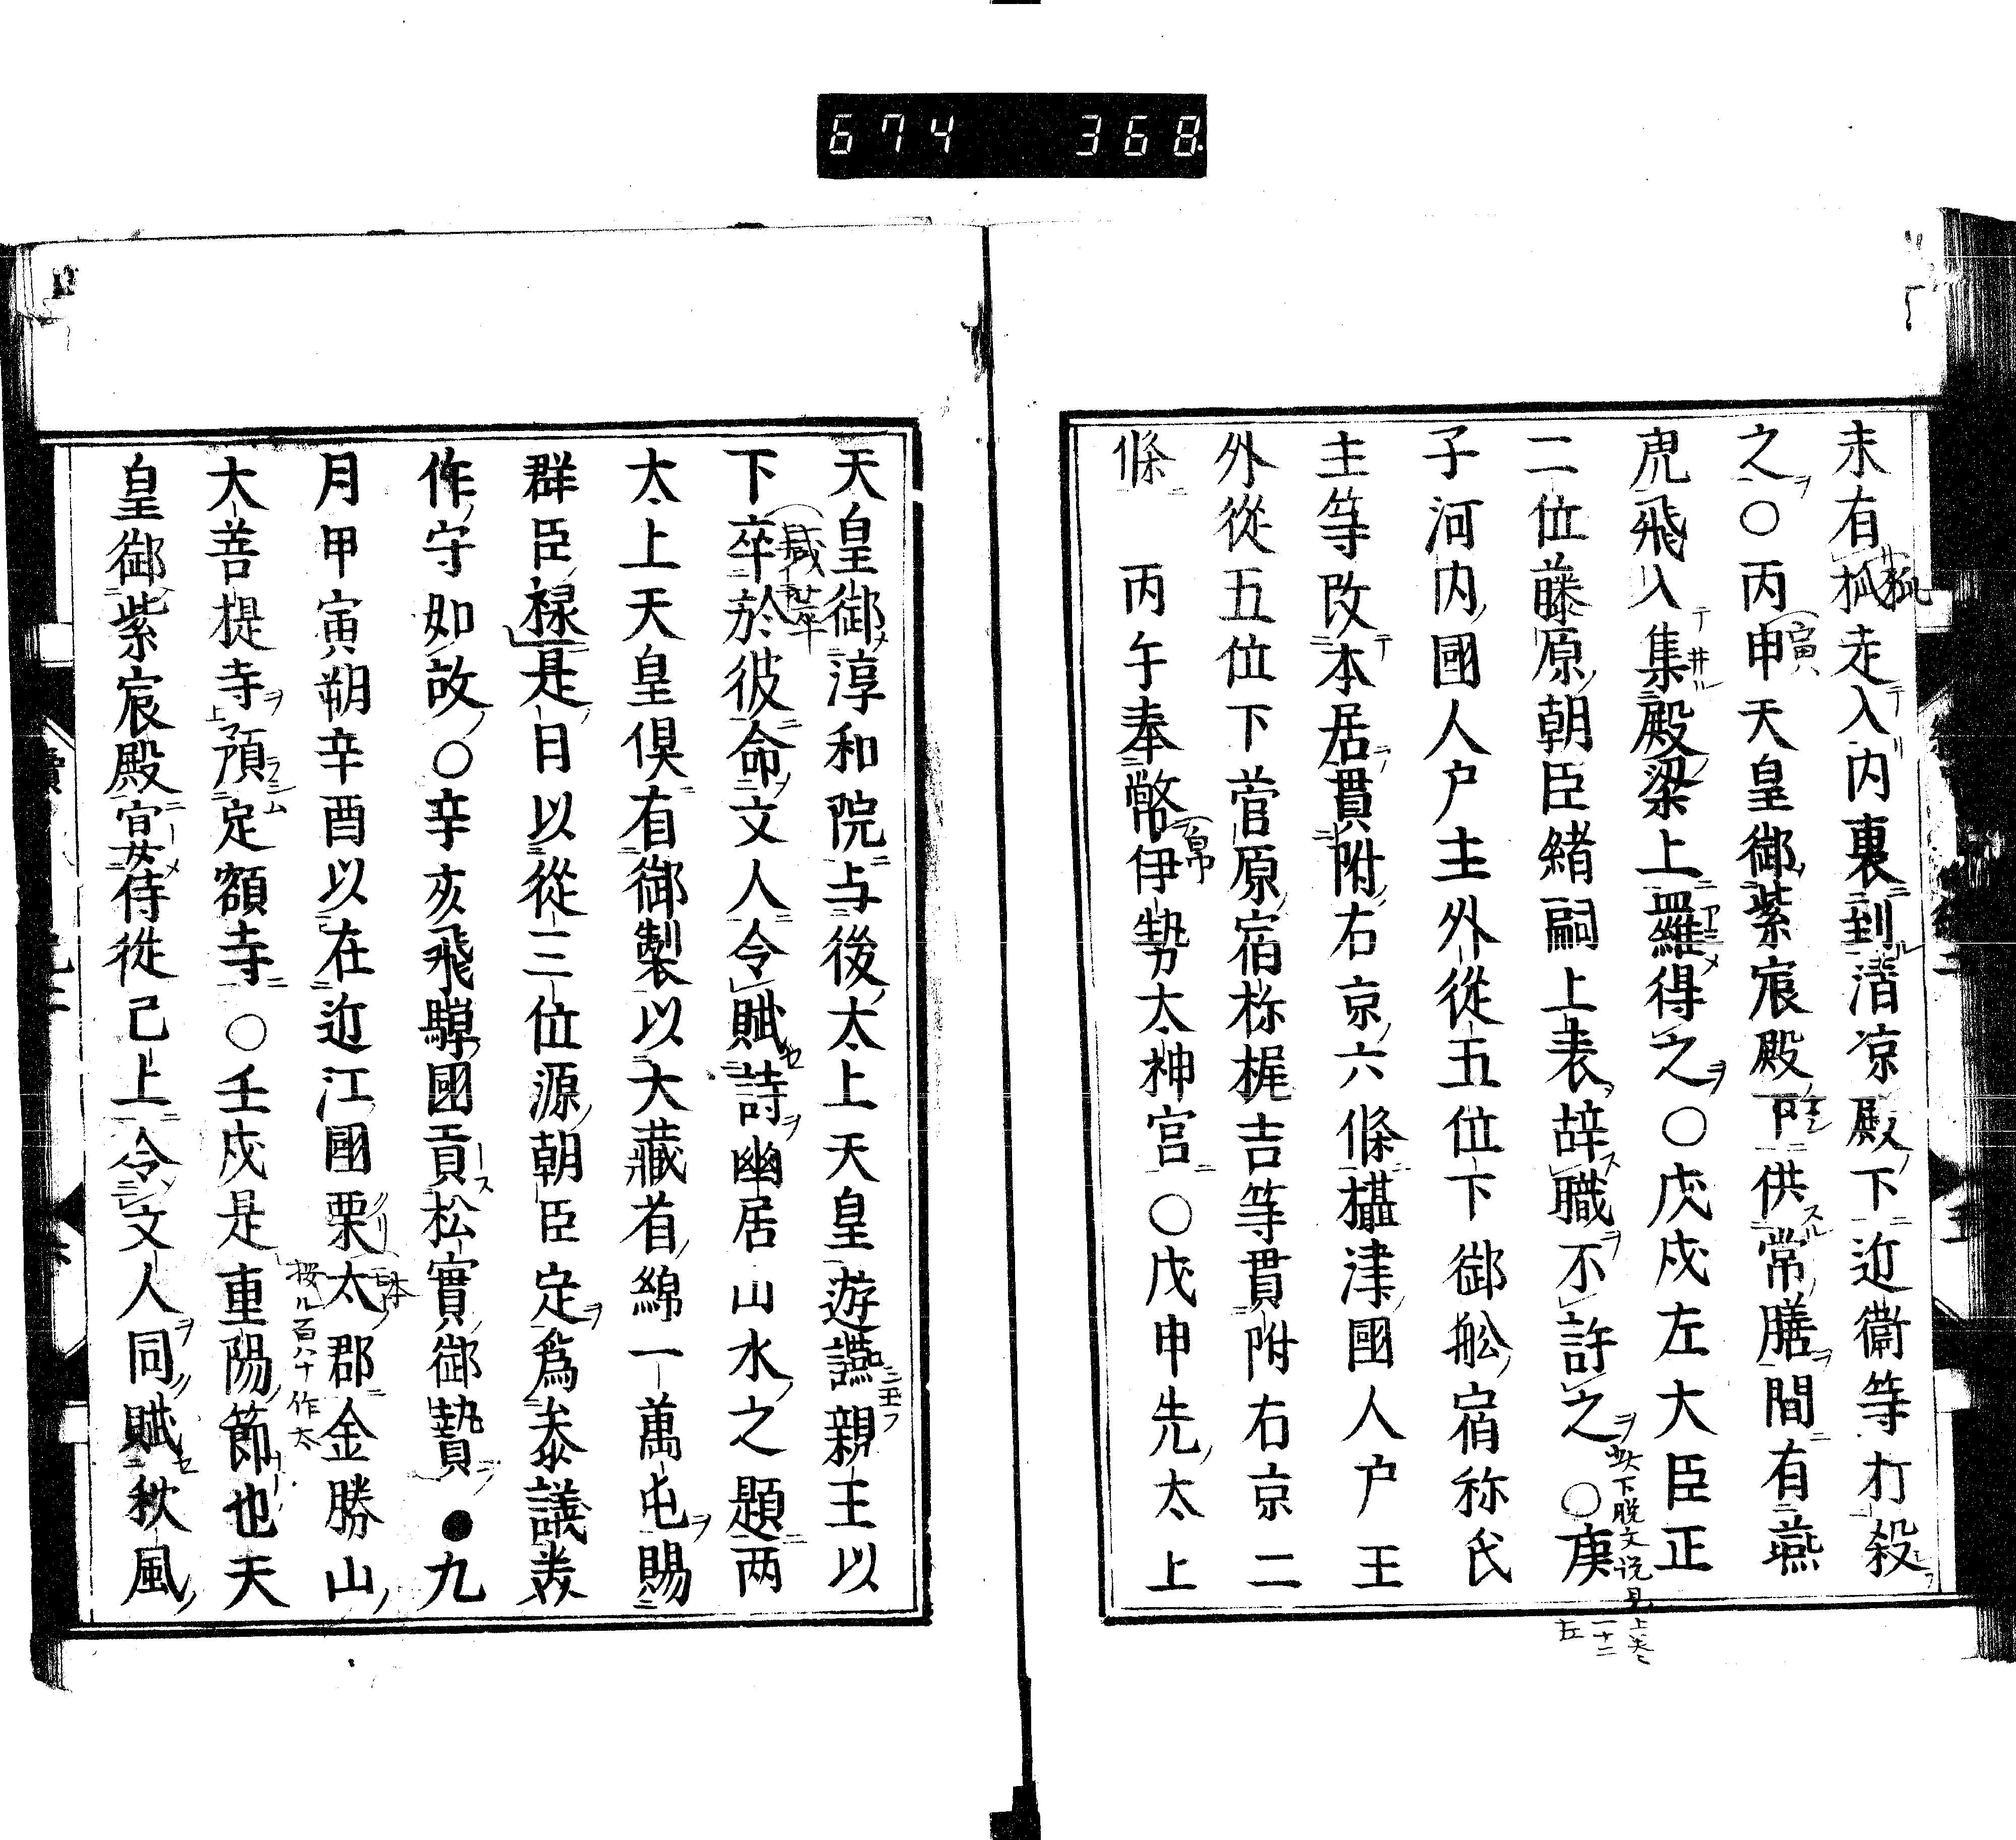 674 368
未有狐走入内裏到清凉殿下近衛等打殺
之○丙申天皇御紫宸殿下供常膳間有燕
庽飛入集殿梁上羅得之○戊戌左大臣正
二位藤原朝臣緒嗣上表辞職不許之○庚
子河内國人户主外從五位下御舩宿祢氏
主等改本居貫附右京六條攝津國人户王
外從五位下菅原宿祢梶吉等貫附右京二
條 丙午奉幣伊勢大神宮○戊申先太上
天皇御淳和院与後太上天皇遊讌親王以
下卒於彼命文人令賦詩幽居山水之題两
太上天皇倶有御製以大藏省綿一萬屯賜
群臣禄是日以從三位源朝臣定爲叅議裁
作守如故○辛亥飛驒國貢松實御贄●九
月甲寅朔辛酉以在近江國栗太郡金勝山
大菩提寺預定額寺○壬戌是重陽節也天
皇御紫宸殿宴侍從已上令文人同賦秋風